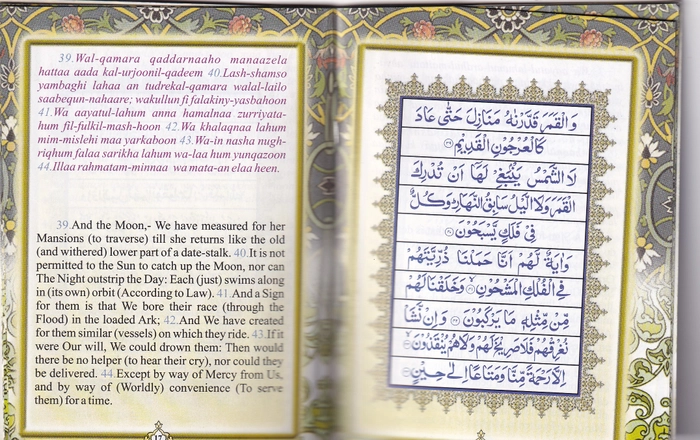 39.Wal-qamara qaddarnaaho manaazela
hattaa aada kal-urjoonil-qadeem 40.Lash-shamso
yambaghi lahaa an tudrekal-qamara walal-lailo
saabequn-nahaare; wakullun fi falakiny-yasbahoon
41.Wa aayatul-lahum anna hamalnaa zurriyata-
hum fil-fulkil-mash-hoon 42.Wa khalaqnaa lahum
mim-mislehi maa yarkaboon 43.Wa-in nasha nugh-
riqhum falaa sarikha lahum wa-laa hum yunqazoon
44.Illaa rahmatam-minnaa wa mata-an elaa heen.
39.And the Moon,- We have measured for her
Mansions (to traverse) till she returns like the old
(and withered) lower part of a date-stalk. 40.It is not
permitted to the Sun to catch up the Moon, nor can
The Night outstrip the Day: Each (just) swims along
in (its own) orbit (According to Law). 41.And a Sign
for them is that We bore their race (through the
Flood) in the loaded Ark; 42.And We have created
for them similar (vessels) on which they ride. 43.If it
were Our will, We could drown them: Then would
there be no helper (to hear their cry), nor could they
be delivered. 44.Except by way of Mercy from Us,
and by way of (Worldly) convenience (To serve
them) for a time.
17
وَالْقَمَرَ قَدَّرْنٰهُ مَنَازِلَ حَتّٰى عَادَ
كَالْعُرْجُوْنِ الْقَدِيْمِ ﴿۳۹﴾
لَا الشَّمْسُ يَنْۢبَغِيْ لَهَآ اَنْ تُدْرِكَ
الْقَمَرَ وَلَا الَّيْلُ سَابِقُ النَّهَارِ ؕ وَكُلٌّ
فِيْ فَلَكٍ يَّسْبَحُوْنَ ﴿۴۰﴾
وَاٰيَةٌ لَّهُمْ اَنَّا حَمَلْنَا ذُرِّيَّتَهُمْ
فِي الْفُلْكِ الْمَشْحُوْنِ ﴿۴۱﴾ وَخَلَقْنَا لَهُمْ
مِّنْ مِّثْلِهٖ مَا يَرْكَبُوْنَ ﴿۴۲﴾ وَاِنْ نَّشَاْ
نُغْرِقْهُمْ فَلَا صَرِيْخَ لَهُمْ وَلَا هُمْ يُنْقَذُوْنَ ﴿۴۳﴾
اِلَّا رَحْمَةً مِّنَّا وَمَتَاعًا اِلٰى حِيْنٍ ﴿۴۴﴾